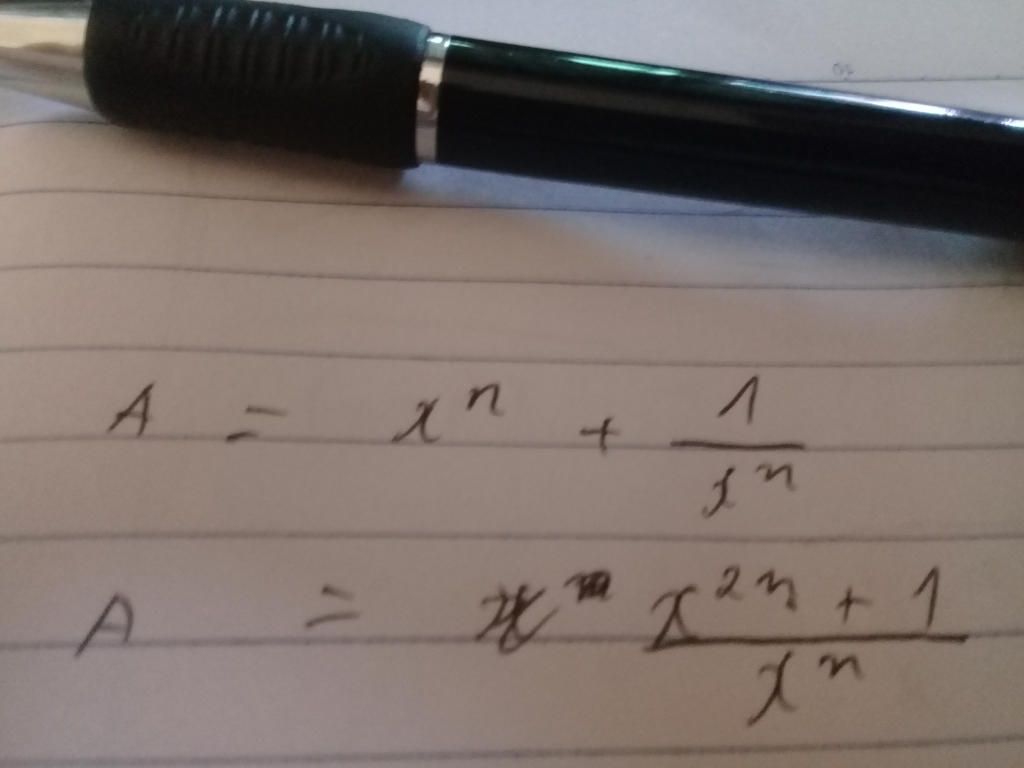 A = xⁿ + 1/xⁿ
A = x²ⁿ + 1/xⁿ